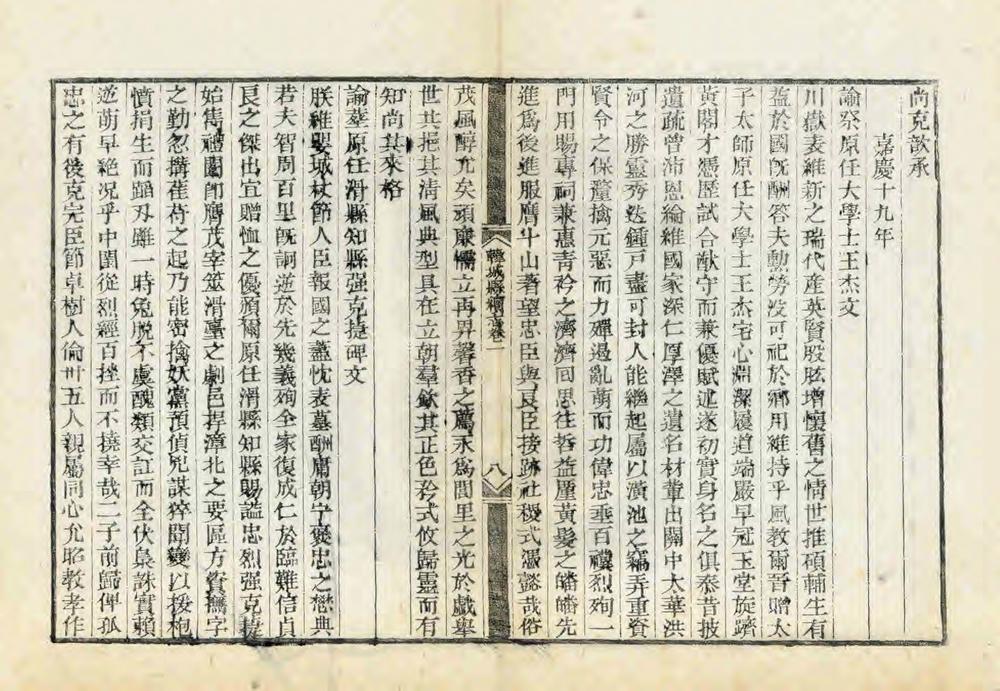 尚克歆承
嘉慶十九年
諭祭原任大學士王杰文
川嶽表維新之瑞代產英賢股肱增懷舊之情世推碩輔生有
益於國旣酬答夫勳勞沒可祀於鄉用維持乎風教爾晉贈太
子太師原任大學士王杰宅心淵潔履道端嚴早冠玉堂旋躋
黃閣才憑歷試合猷守而兼優賦述遂初實身名之俱泰昔披
遺疏曾沛恩綸維國家深仁厚澤之遺名材輩出關中太華洪
河之勝靈秀迭鍾戸盡可封人能繼起屬以潢池之竊弄重資
賢令之保釐擒元惡而力殫遏亂萌而功偉忠垂百禩烈殉一
門用賜專祠兼惠青衿之濟濟囘思往哲益厪黃髮之皤皤先
進爲後進服膺斗山著望忠臣與良臣接跡社稷式憑懿哉俗
茂風醇允矣頑廉懦立再昇馨香之薦永爲閭里之光於戲舉
世共挹其淸風典型具在立朝羣欽其正色矜式攸歸靈而有
知尚其來格
諭葬原任滑縣知縣强克捷碑文
朕維嬰城杖節人臣報國之藎忱表墓酬庸朝宁褒忠之懋典
若夫智周百里旣詗逆於先幾義殉全家復成仁於臨難信貞
良之傑出宜贈恤之優頒爾原任滑縣知縣賜謚忠烈强克捷
始雋禮闈卽膺茂宰筮滑臺之劇邑捍漳北之要區方資撫字
之勤忽搆萑苻之起乃能密擒妖黨預偵兇謀猝聞變以援枹
憤捐生而蹈刃雖一時兔脫不虞醜類交訌而全伏梟誅實賴
逆萌早絶况乎中閨從烈經百挫而不撓幸哉二子前歸俾孤
忠之有後克完臣節卓樹人倫卅五人親屬同心允昭教孝作
韓城縣續志卷一
八